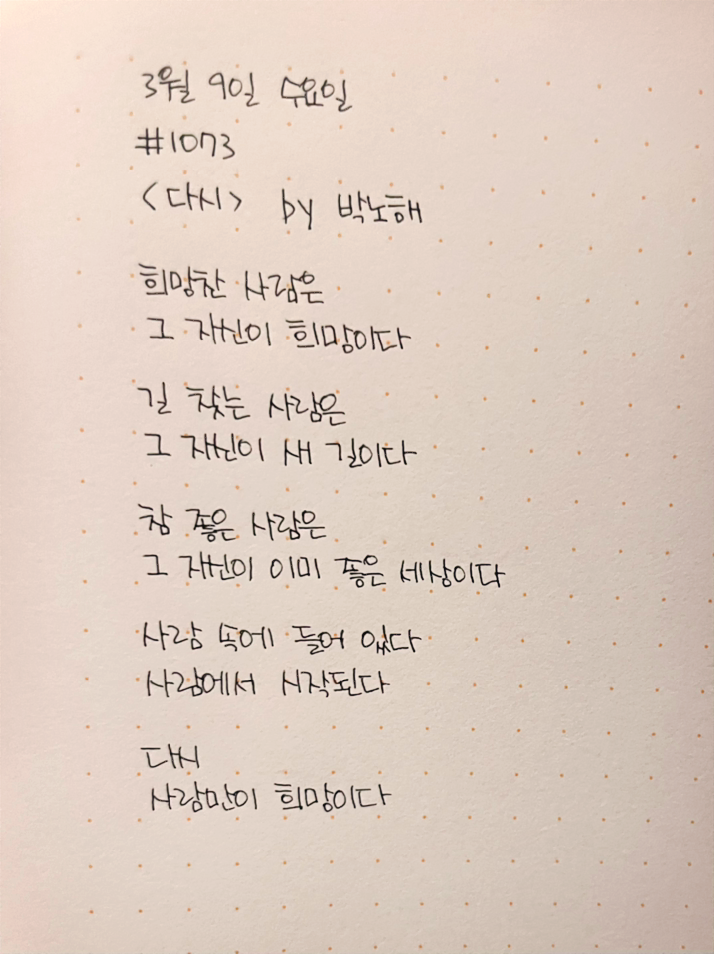 3월 9일 수요일
#1073
<다시> by 박노해
희망찬 사람은
그 자신이 희망이다
길 찾는 사람은
그 자신이 새 길이다
참 좋은 사람은
그 자신이 이미 좋은 세상이다
사람 속에 들어 있다
사람에서 시작된다
다시
사람만이 희망이다